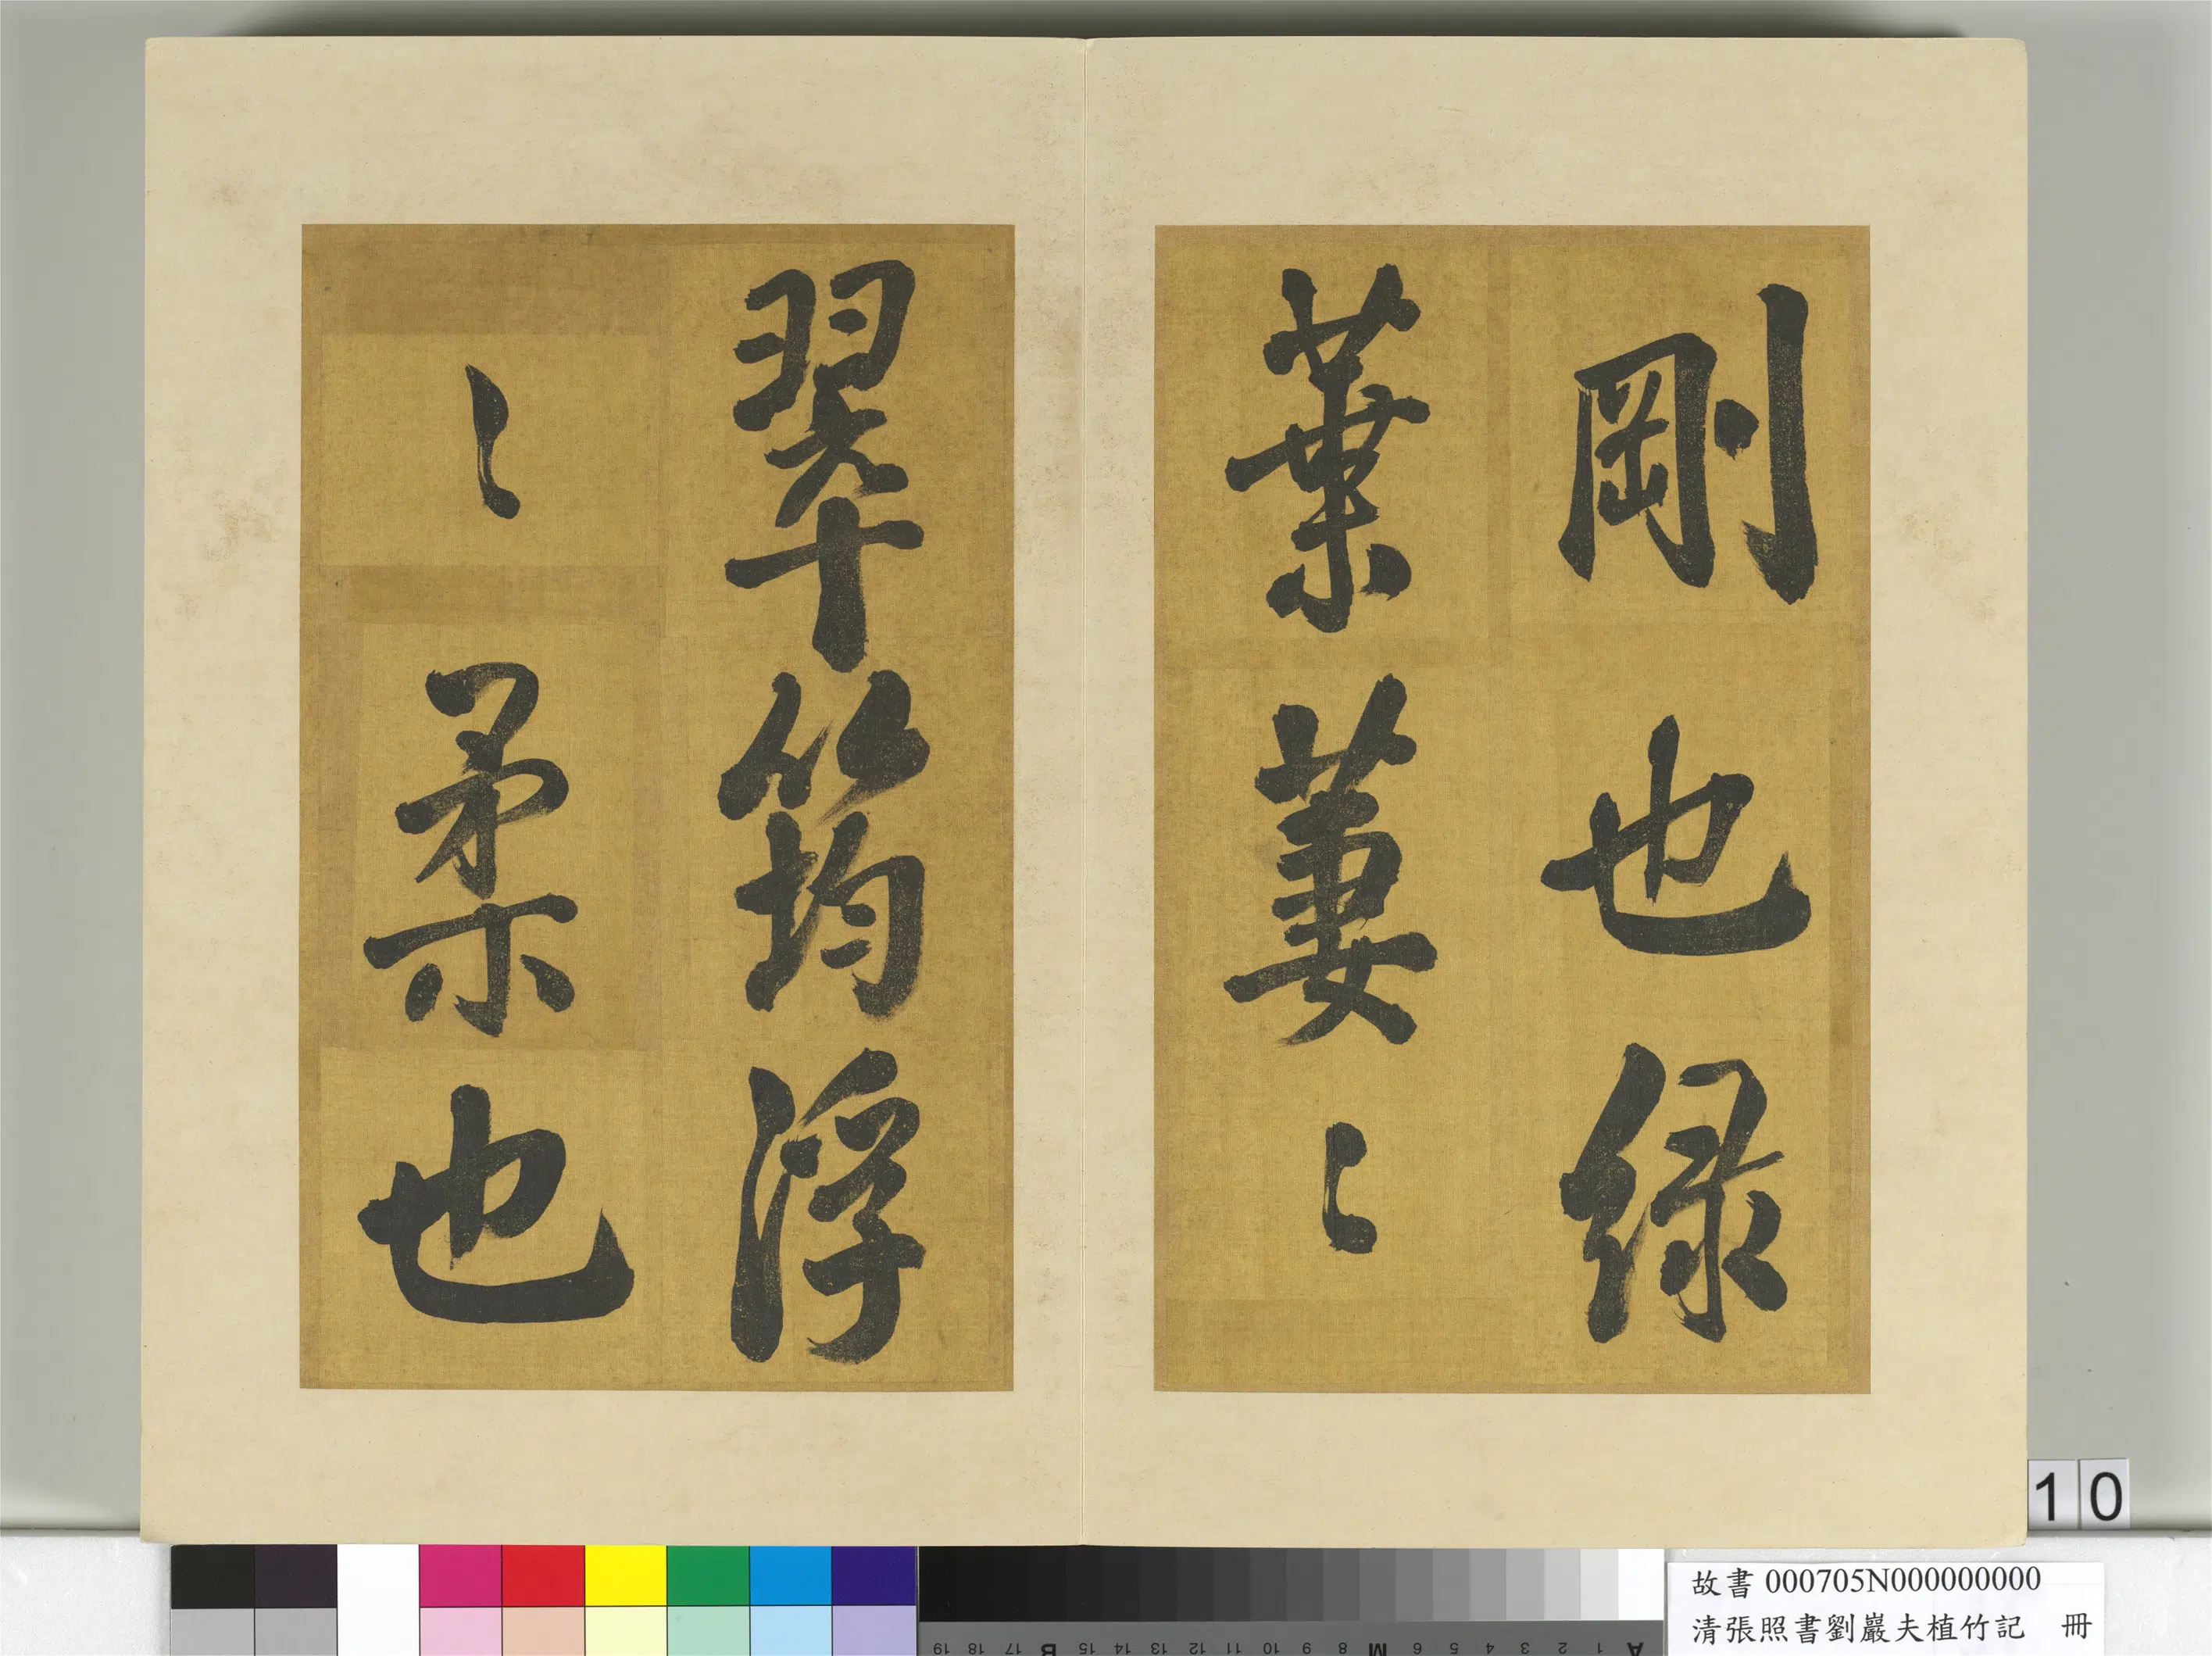 剛也緑
葉萋〻
翠筠浮
〻柔也
10
故書 000705N000000000
清張照書劉巖夫植竹記 冊
A 1 2 3 4 5 6 7 8 M 9 10 11 12 13 14 15 B 17 18 19